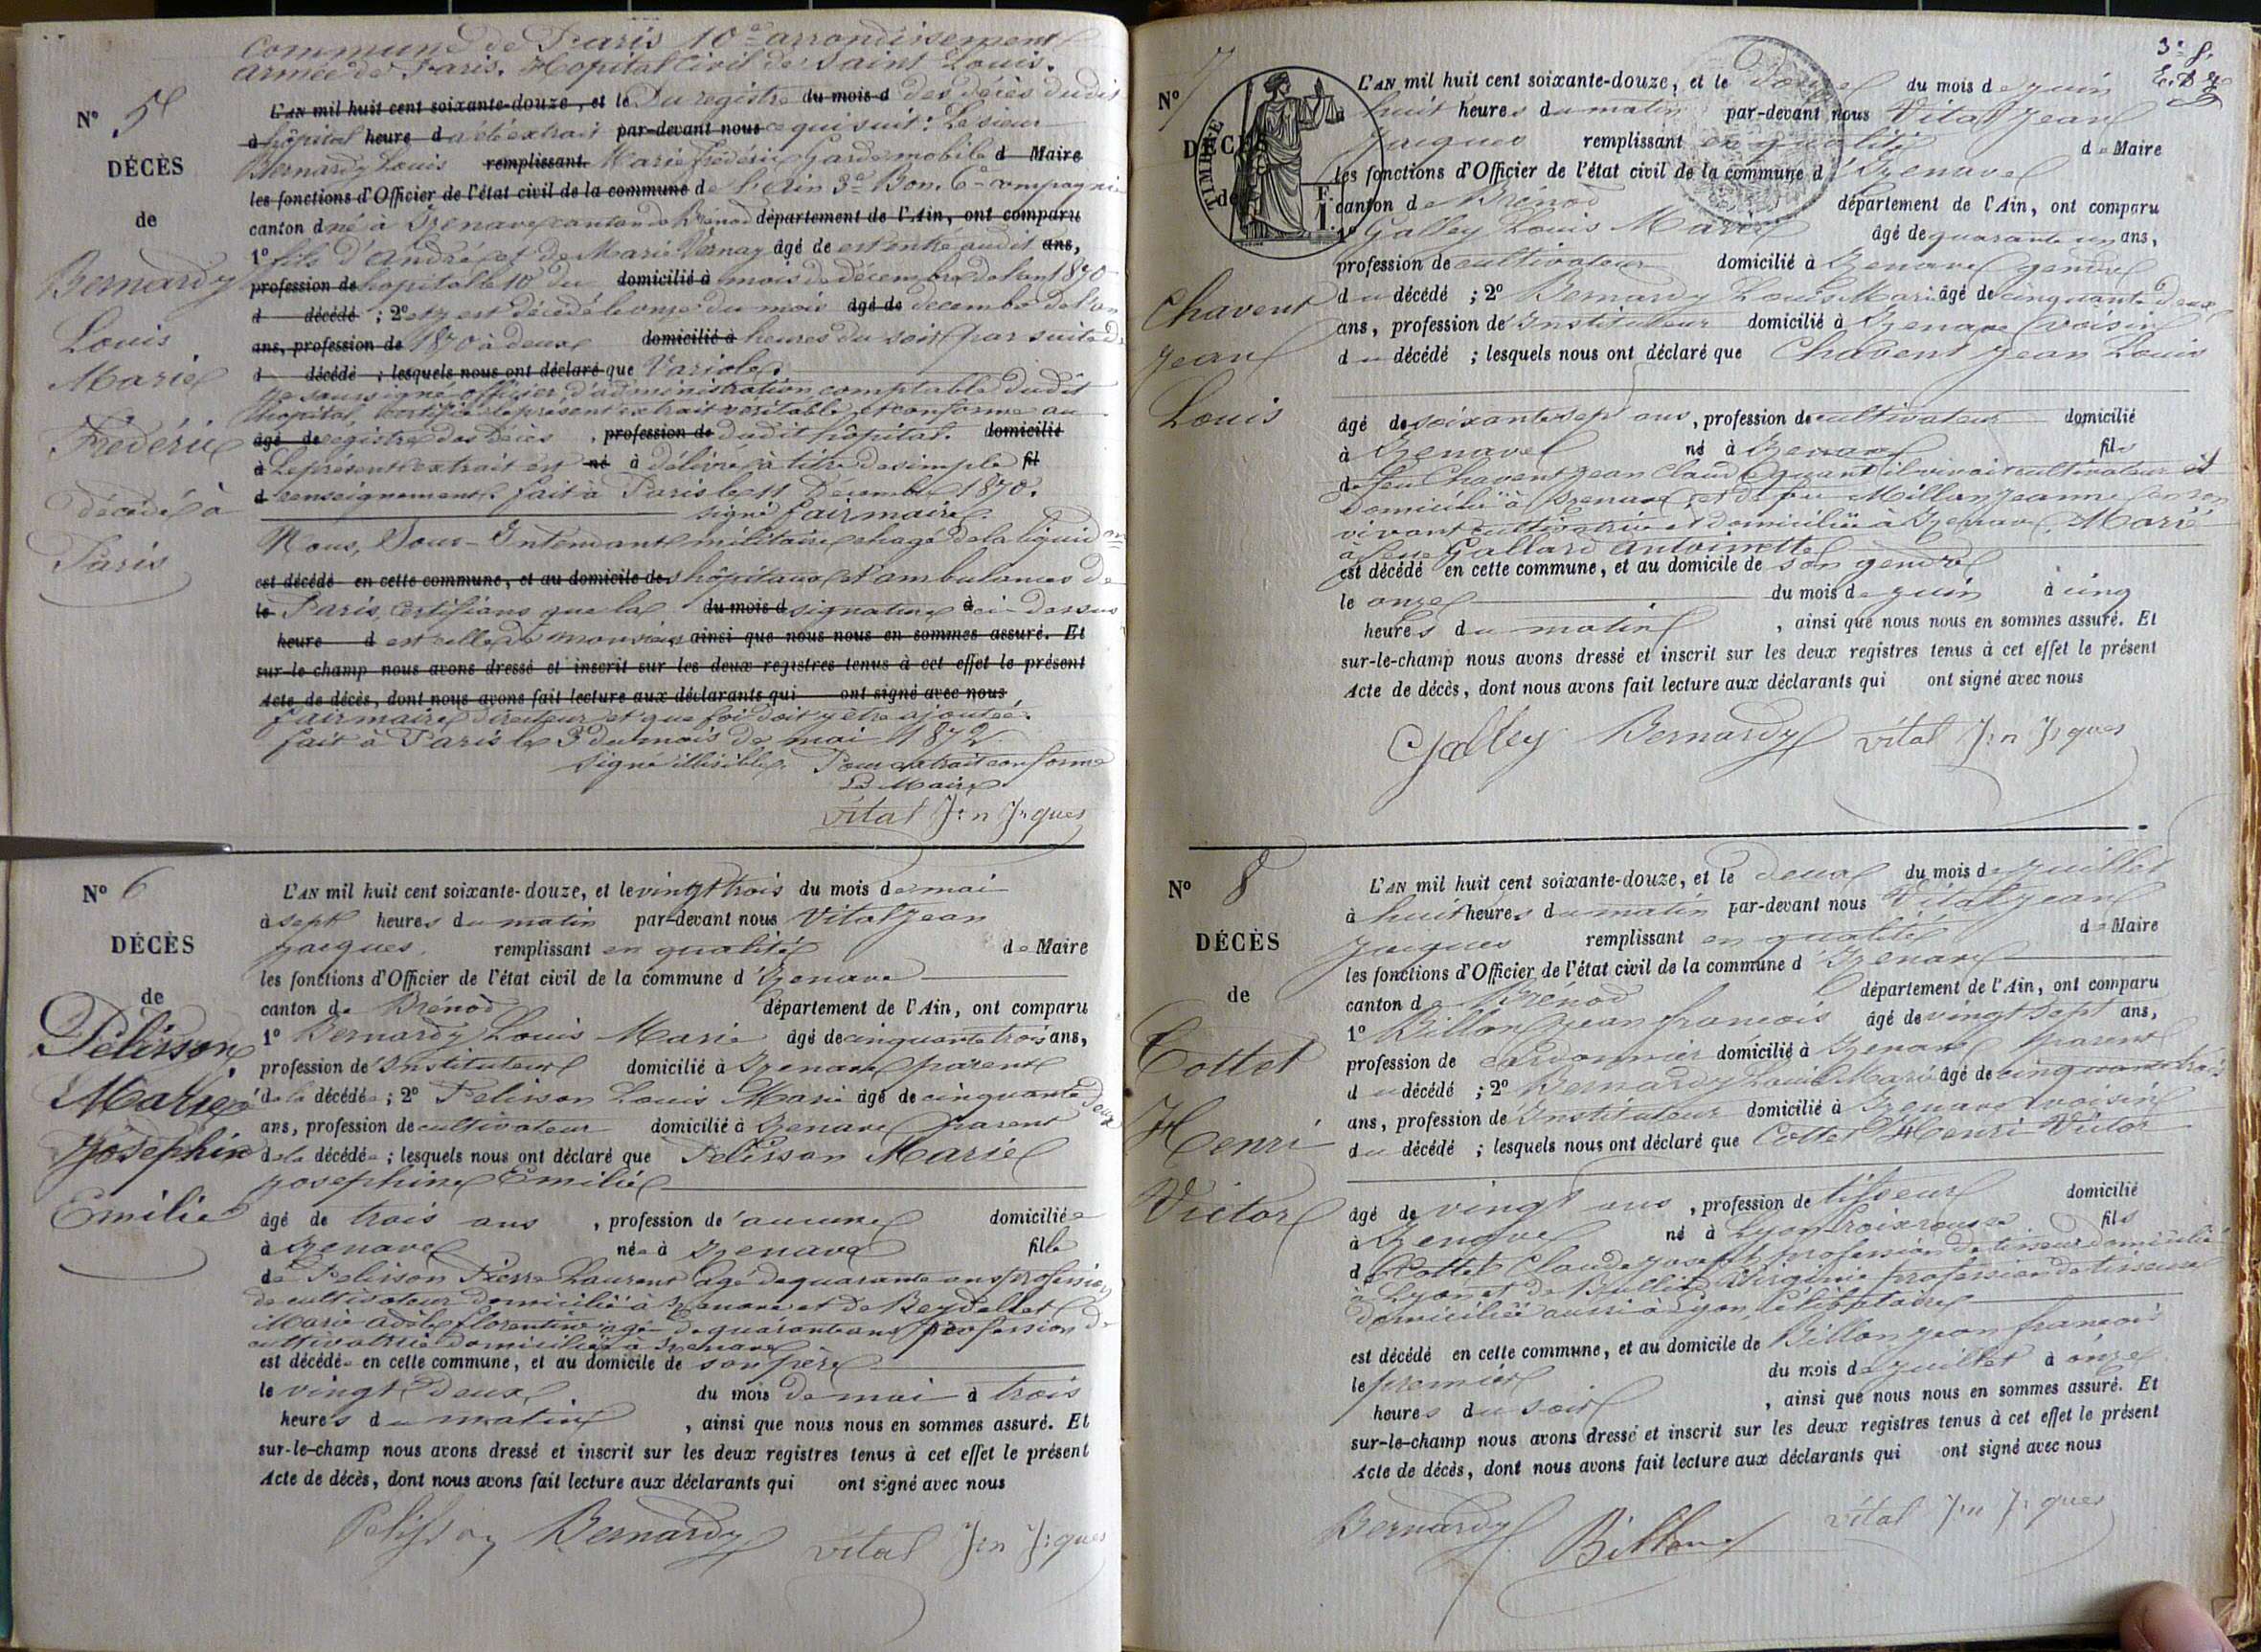 Commune de Paris 10e arrondissement
Armée de Paris. Hopital Civil de Saint Louis.
N° 5
DÉCÈS
de
Bernardy
Louis
Marie
Frédéric
décédé à
Paris
L'AN mil huit cent soixante-douze, et le Du registre du mois d des décès dudit
à hôpital heure d a été extrait par-devant nous ce qui suit : Le sieur
Bernardy Louis remplissant Marie Frédéric Garde mobile d Maire
les fonctions d'Officier de l'état civil de la commune de l'Ain 3e Bon. 6e compagnie
canton d né à Izenave canton de Brénod département de l'Ain, ont comparu
1° fils d'André et de Marie Vernay âgé de est entré audit ans,
profession de hopital le 10 du domicilié à mois de décembre de l'an 1870
d décédé ; 2° et y est décédé le onze du mois âgé de decembre de l'an
ans, profession de 1870 à deux domicilié à heures du soir par suite de
d décédé ; lesquels nous ont déclaré que Variole.
Je soussigné officier d'administration comptable dudit
hôpital, certifie le présent extrait veritable et conforme au
âgé de registre des Décès , profession de dudit hôpital. domicilié
à Le présent extrait est né à délivré à titre de simple fil
d renseignement. fait à Paris le 11 Décembre 1870.
signé Fairmaire.
Nous, Sous-Intendant militaire chagé de la liquidon
est décédé en cette commune, et au domicile de des hôpitaux et ambulances de
le Paris, certifions que la du mois d signature à ci-dessus
heure d est celle de monsieur ainsi que nous nous en sommes assuré. Et
sur-le-champ nous avons dressé et inscrit sur les deux registres tenus à cet effet le présent
Acte de décès, dont nous avons fait lecture aux déclarants qui ont signé avec nous
Fairmaire directeur et que foi doit y être ajoutée.
fait à Paris le 3 du mois de mai 1872
signé illisible. Pour extrait conforme
Le Maire
Vital Jn Jques
N° 6
DÉCÈS
de
Pélisson
Marie
Joséphine
Emilie
L'AN mil huit cent soixante-douze, et le vingt trois du mois de mai
à sept heures du matin par-devant nous Vital Jean
Jacques remplissant en qualité de Maire
les fonctions d'Officier de l'état civil de la commune d'Izenave
canton de Brénod département de l'Ain, ont comparu
1° Bernardy Louis Marie âgé de cinquante trois ans,
profession d'Instituteur domicilié à Izenave parent
de la décédée ; 2° Pelisson Louis Marie âgé de cinquante deux
ans, profession de cultivateur domicilié à Izenave parent
de la décédée ; lesquels nous ont déclaré que Pelisson Marie
Josephine Emilie
âgé de trois ans , profession de aucune domiciliée
à Izenave née à Izenave fille
de Pelisson Pierre Laurent agé de quarante ans profession
de cultivateur domicilié à Izenave et de Beydellet
Marie Adèle Florentine agée de quarante ans profession de
cultivatrice domiciliée à Izenave
est décédée en cette commune, et au domicile de son père
le vingt deux du mois de mai à trois
heures du matin , ainsi que nous nous en sommes assuré. Et
sur-le-champ nous avons dressé et inscrit sur les deux registres tenus à cet effet le présent
Acte de décès, dont nous avons fait lecture aux déclarants qui ont signé avec nous
Pelisson Bernardy Vital Jn Jques
3e f.
N° 7
TIMBRE
DÉCÈS
de
1 F.
Chavent
Jean
Louis
L'AN mil huit cent soixante-douze, et le Douze du mois de juin
à huit heures du matin par-devant nous Vital Jean
Jacques remplissant en qualité de Maire
les fonctions d'Officier de l'état civil de la commune d'Izenave
canton de Brénod département de l'Ain, ont comparu
1° Galley Louis Marie âgé de quarante un ans,
profession de cultivateur domicilié à Izenave gendre
du décédé ; 2° Bernardy Louis Marie âgé de cinquante deux
ans, profession d'Instituteur domicilié à Izenave voisin
du décédé ; lesquels nous ont déclaré que Chavent Jean Louis
âgé de soixante sept ans , profession de cultivateur domicilié
à Izenave né à Izenave fils
de feu Chavent Jean Claude quant il vivait cultivateur et
domicilié à Izenave, et de feu Millan Jeanne en son
vivant cultivatrice et domiciliée à Izenave, Marié
à feue Gallard Antoinette
est décédé en cette commune, et au domicile de son gendre
le onze du mois de juin à cinq
heures du matin , ainsi que nous nous en sommes assuré. Et
sur-le-champ nous avons dressé et inscrit sur les deux registres tenus à cet effet le présent
Acte de décès, dont nous avons fait lecture aux déclarants qui ont signé avec nous
Galley Bernardy Vital Jn Jques
N° 8
DÉCÈS
de
Cottet
Henri
Victor
L'AN mil huit cent soixante-douze, et le deux du mois de juillet
à huit heures du matin par-devant nous Vital Jean
Jacques remplissant en qualité de Maire
les fonctions d'Officier de l'état civil de la commune d'Izenave
canton de Brénod département de l'Ain, ont comparu
1° Billon Jean françois âgé de vingt sept ans,
profession de cordonnier domicilié à Izenave parent
du décédé ; 2° Bernardy Louis Marie âgé de cinquante trois
ans, profession d'Instituteur domicilié à Izenave voisin
du décédé ; lesquels nous ont déclaré que Cottet Henri Victor
âgé de vingt ans , profession de tisseur domicilié
à Izenave né à Lyon Croix rousse fils
de Cottet Claude Joseph profession de tisseur domicilié
à Lyon et de Virginie profession de tisseuse
domiciliée aussi à Lyon, célibataire
est décédé en cette commune, et au domicile de Billon Jean françois
le premier du mois de juillet à onze
heures du soir , ainsi que nous nous en sommes assuré. Et
sur-le-champ nous avons dressé et inscrit sur les deux registres tenus à cet effet le présent
Acte de décès, dont nous avons fait lecture aux déclarants qui ont signé avec nous
Bernardy Billon Vital Jn Jques